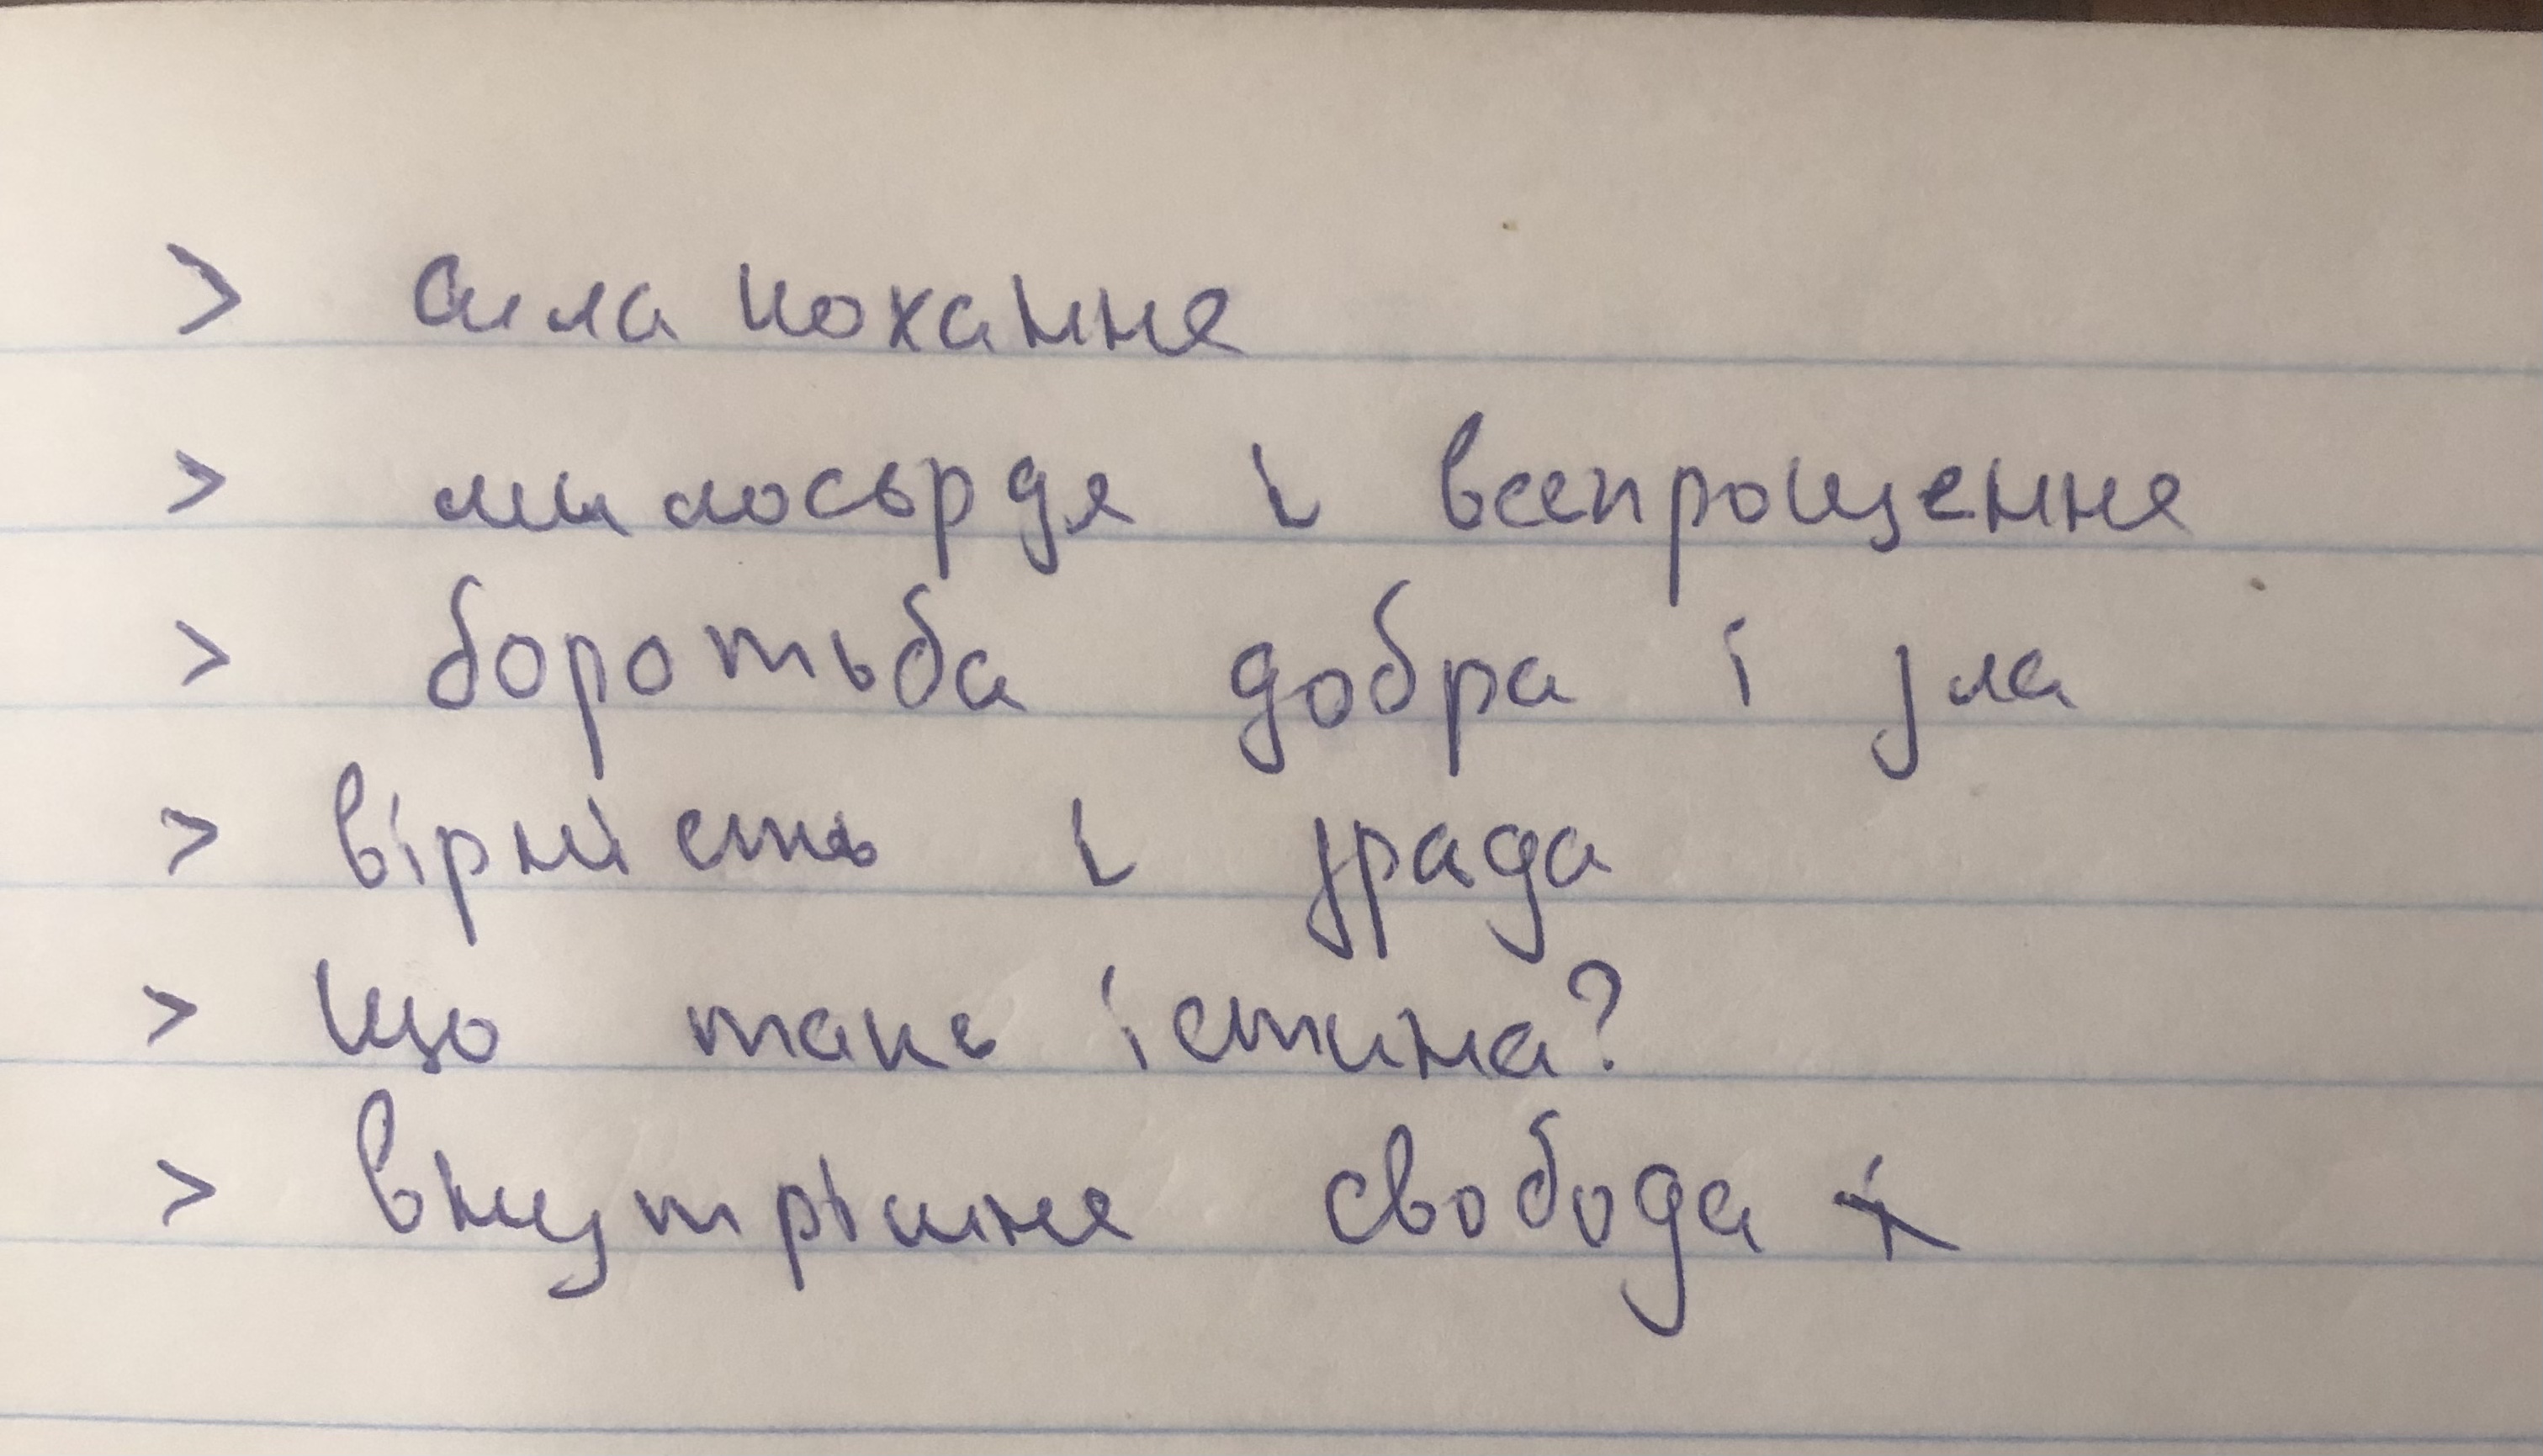 > сила кохання
> милосердя і всепрощення
> боротьба добра і зла
> вірність і зрада
> що таке істина?
> внутрішня свобода